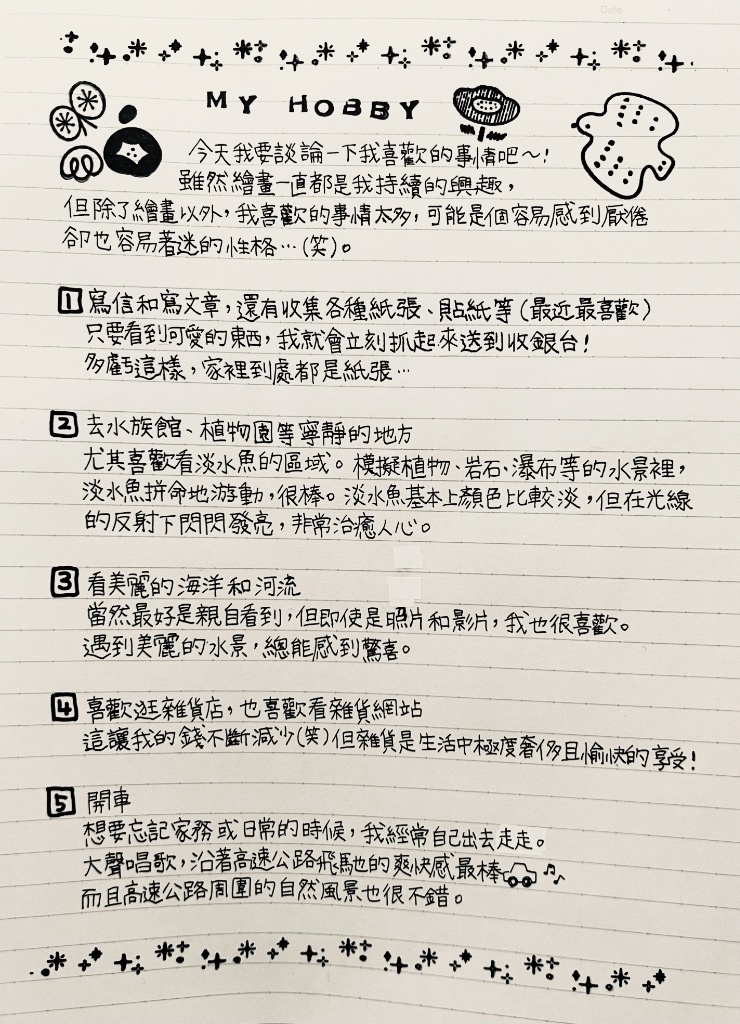 Date
MY HOBBY
今天我要談論一下我喜歡的事情吧～！
雖然繪畫一直都是我持續的興趣，
但除了繪畫以外，我喜歡的事情太多，可能是個容易感到厭倦
卻也容易著迷的性格…（笑）。
1 寫信和寫文章，還有收集各種紙張、貼紙等（最近最喜歡）
只要看到可愛的東西，我就會立刻抓起來送到收銀台！
多虧這樣，家裡到處都是紙張…
2 去水族館、植物園等寧靜的地方
尤其喜歡看淡水魚的區域。模擬植物、岩石、瀑布等的水景裡，
淡水魚拼命地游動，很棒。淡水魚基本上顏色比較淡，但在光線
的反射下閃閃發亮，非常治癒人心。
3 看美麗的海洋和河流
當然最好是親自看到，但即使是照片和影片，我也很喜歡。
遇到美麗的水景，總能感到驚喜。
4 喜歡逛雜貨店，也喜歡看雜貨網站
這讓我的錢不斷減少（笑）但雜貨是生活中極度奢侈且愉快的享受！
5 開車
想要忘記家務或日常的時候，我經常自己出去走走。
大聲唱歌，沿著高速公路飛馳的爽快感最棒
而且高速公路周圍的自然風景也很不錯。